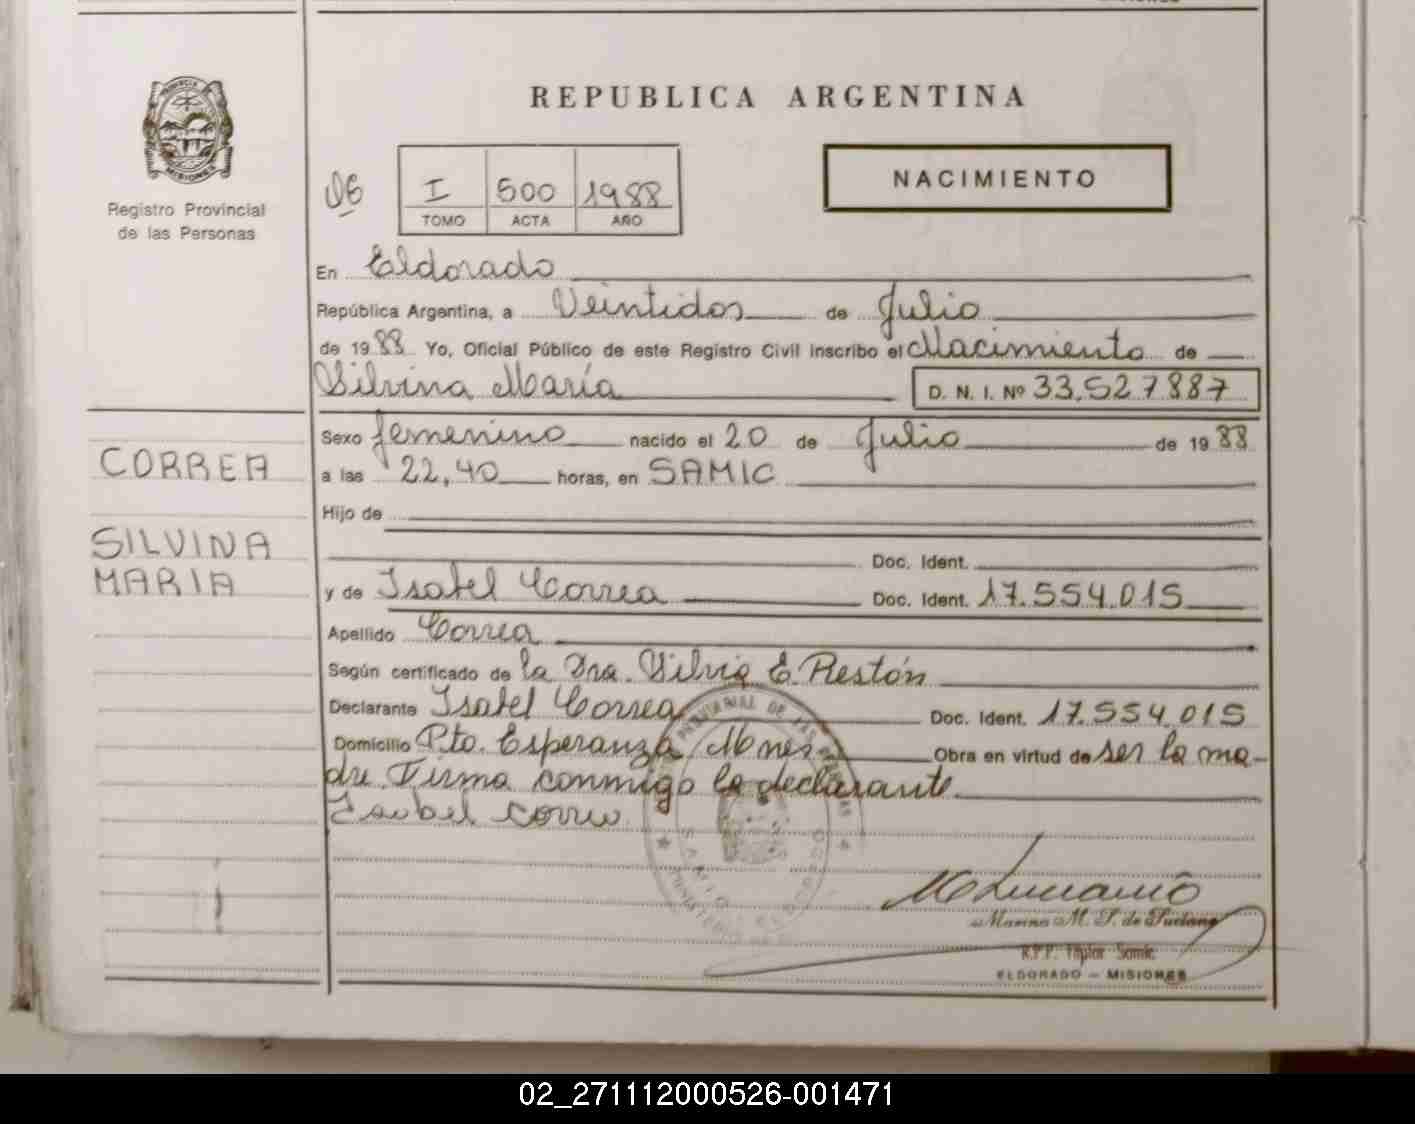 REPUBLICA ARGENTINA
PROVINCIA
MISIONES
Registro Provincial
de las Personas
I 500 1988
TOMO ACTA AÑO
NACIMIENTO
En Eldorado
República Argentina, a Veintidos de Julio
de 1988 Yo, Oficial Público de este Registro Civil inscribo el Nacimiento de
Silvina María D. N. I. Nº 33.527887
Sexo femenino nacido el 20 de Julio de 1988
a las 22,40 horas, en SAMIC
Hijo de
Doc. Ident.
y de Isabel Correa Doc. Ident. 17.554.015
Apellido Correa
Según certificado de la Dra. Silvia E. Restón
Declarante Isabel Correa Doc. Ident. 17.554.015
Domicilio Pto. Esperanza, Mnes Obra en virtud de ser la ma-
dre. Firma conmigo la declarante.
Isabel Correa
CORREA
SILVINA
MARIA
Marina M. S. de
R.P.P. Titular Samic
ELDORADO - MISIONES
02_271112000526-001471